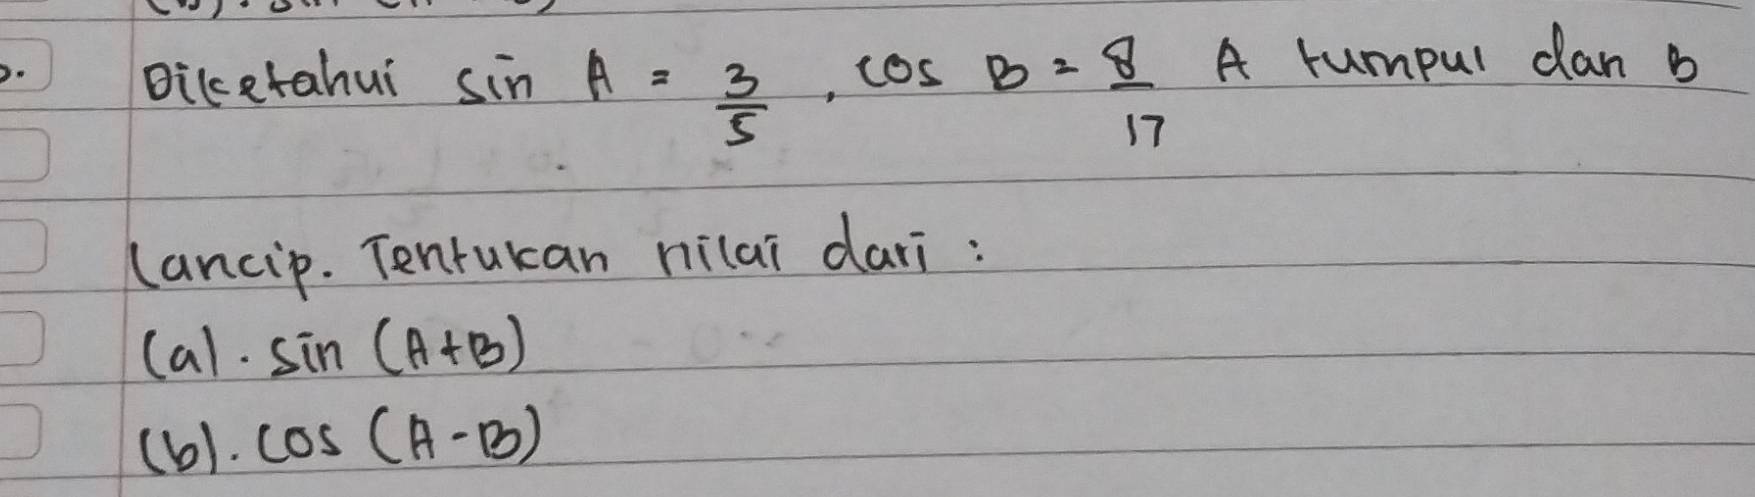 Diketahui sin A = 3/5, cos B = 8/17 A tumpul dan B
lancip. Tentukan nilai dari :
(a). sin (A+B)
(b). cos (A-B)